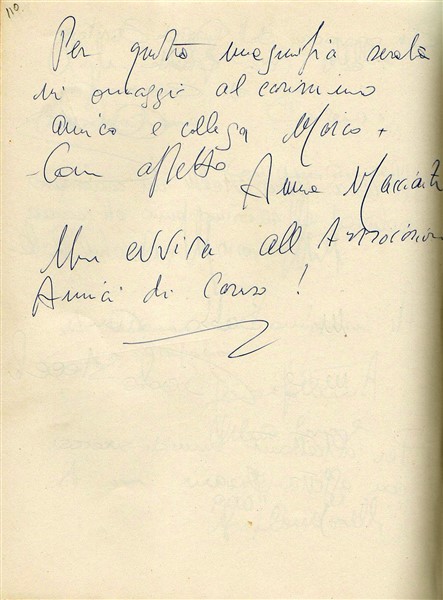 110.
Per questa magnifica serata
in omaggio al carissimo
amico e collega
Con affetto Anna
Un evviva all Associazione
Amici di